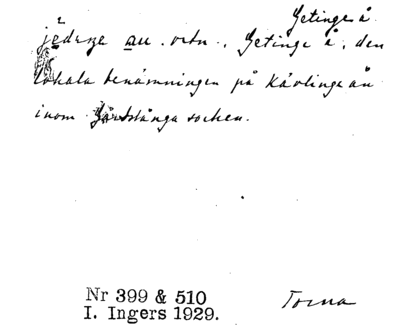 Getinge å
jedinge au. ortn., Getinge å, den
lokala benämningen på Kävlingeån
inom Gårdstånga socken.
Nr 399 & 510
I. Ingers 1929.
Torna